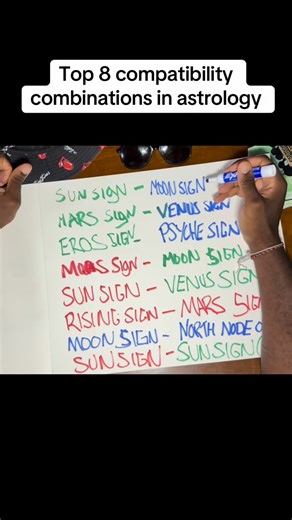 Top 8 compatibility
combinations in astrology
SUN SIGN - MOON SIGN
MARS SIGN - VENUS SIGN
EROS SIGN PSYCHE SIGN
MARS SIGN - MOON SIGN
SUN SIGN - VENUS SIGN
RISING SIGN - MARS SIGN
MOON SIGN - NORTH NODE
SUN SIGN - SUN SIGN